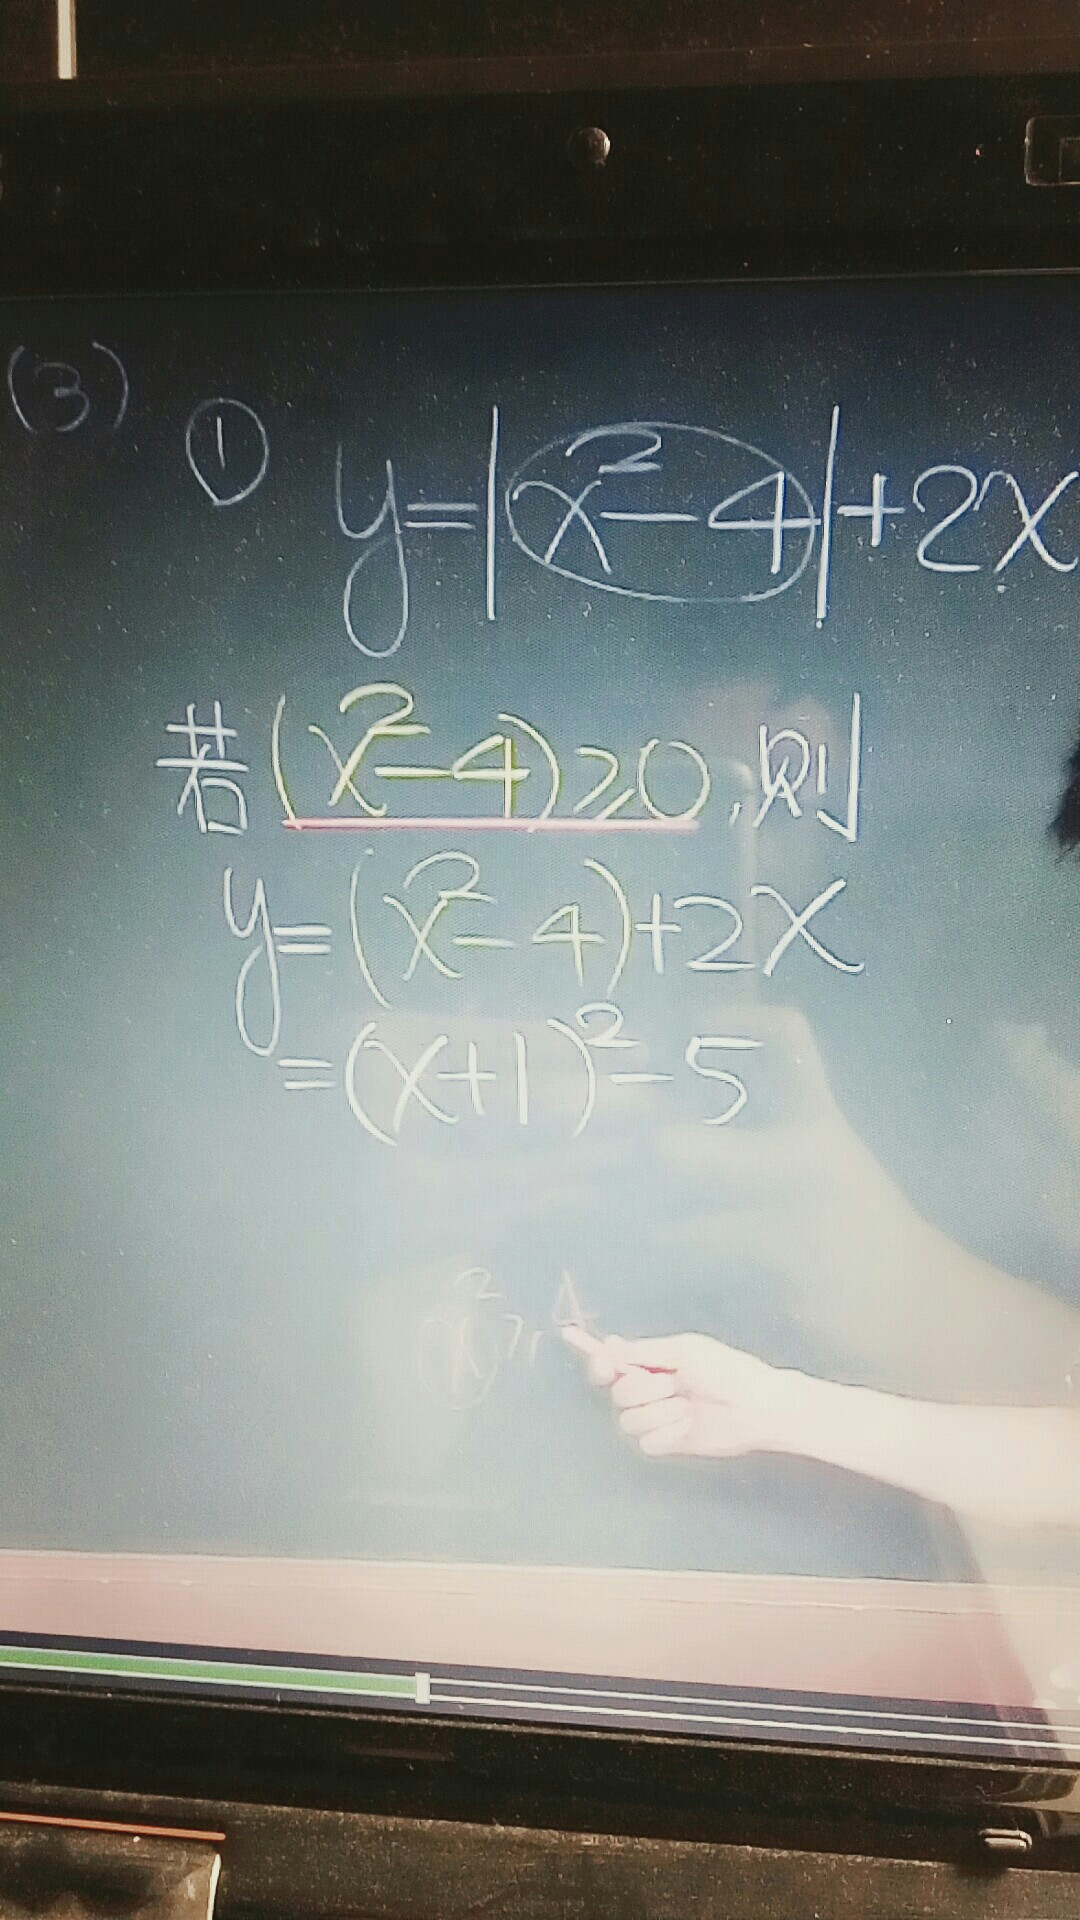 (3) ① y=|x²-4|+2x
若(x²-4)≥0,则
y=(x²-4)+2x
=(x+1)²-5
x²≥4